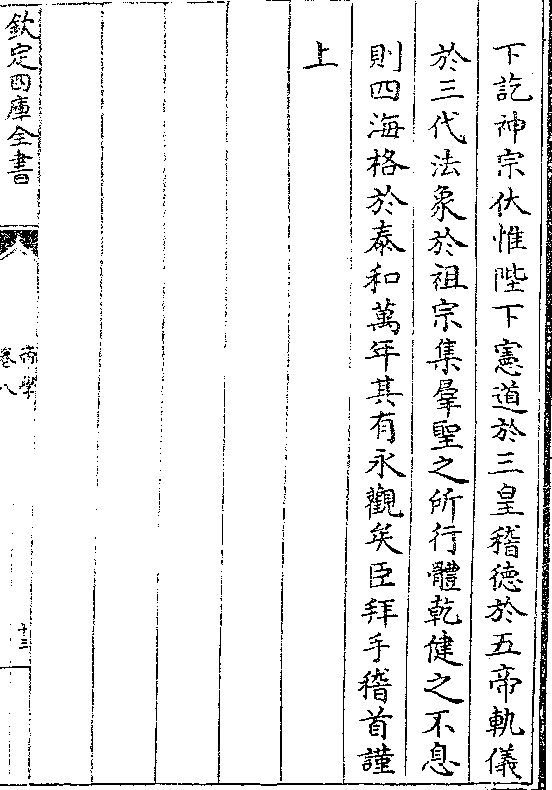 下訖神宗伏惟陛下憲道於三皇稽德於五帝軌儀
於三代法象於祖宗集羣聖之所行體乾健之不息
則四海格於泰和萬年其有永觀矣臣拜手稽首謹
上
欽定四庫全書
帝學
卷八
十三